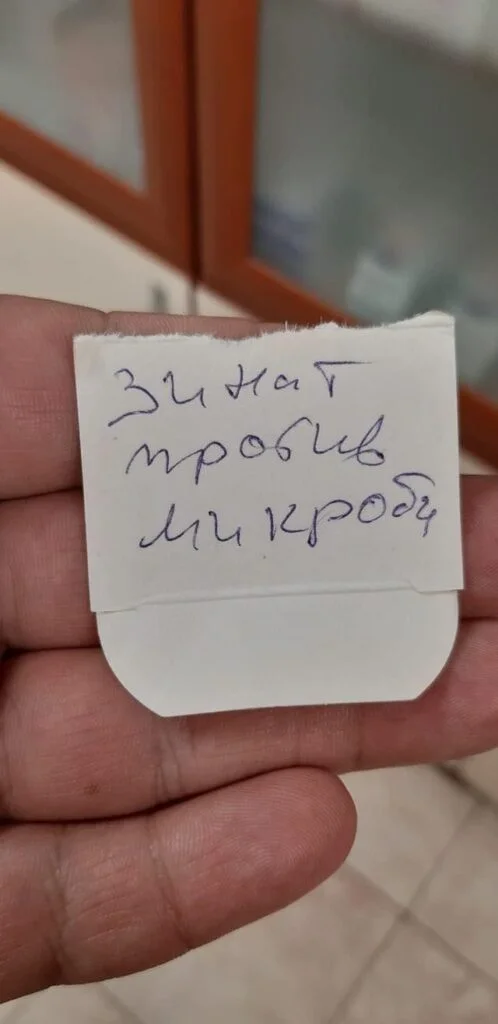 Зинат
пробив
микроби